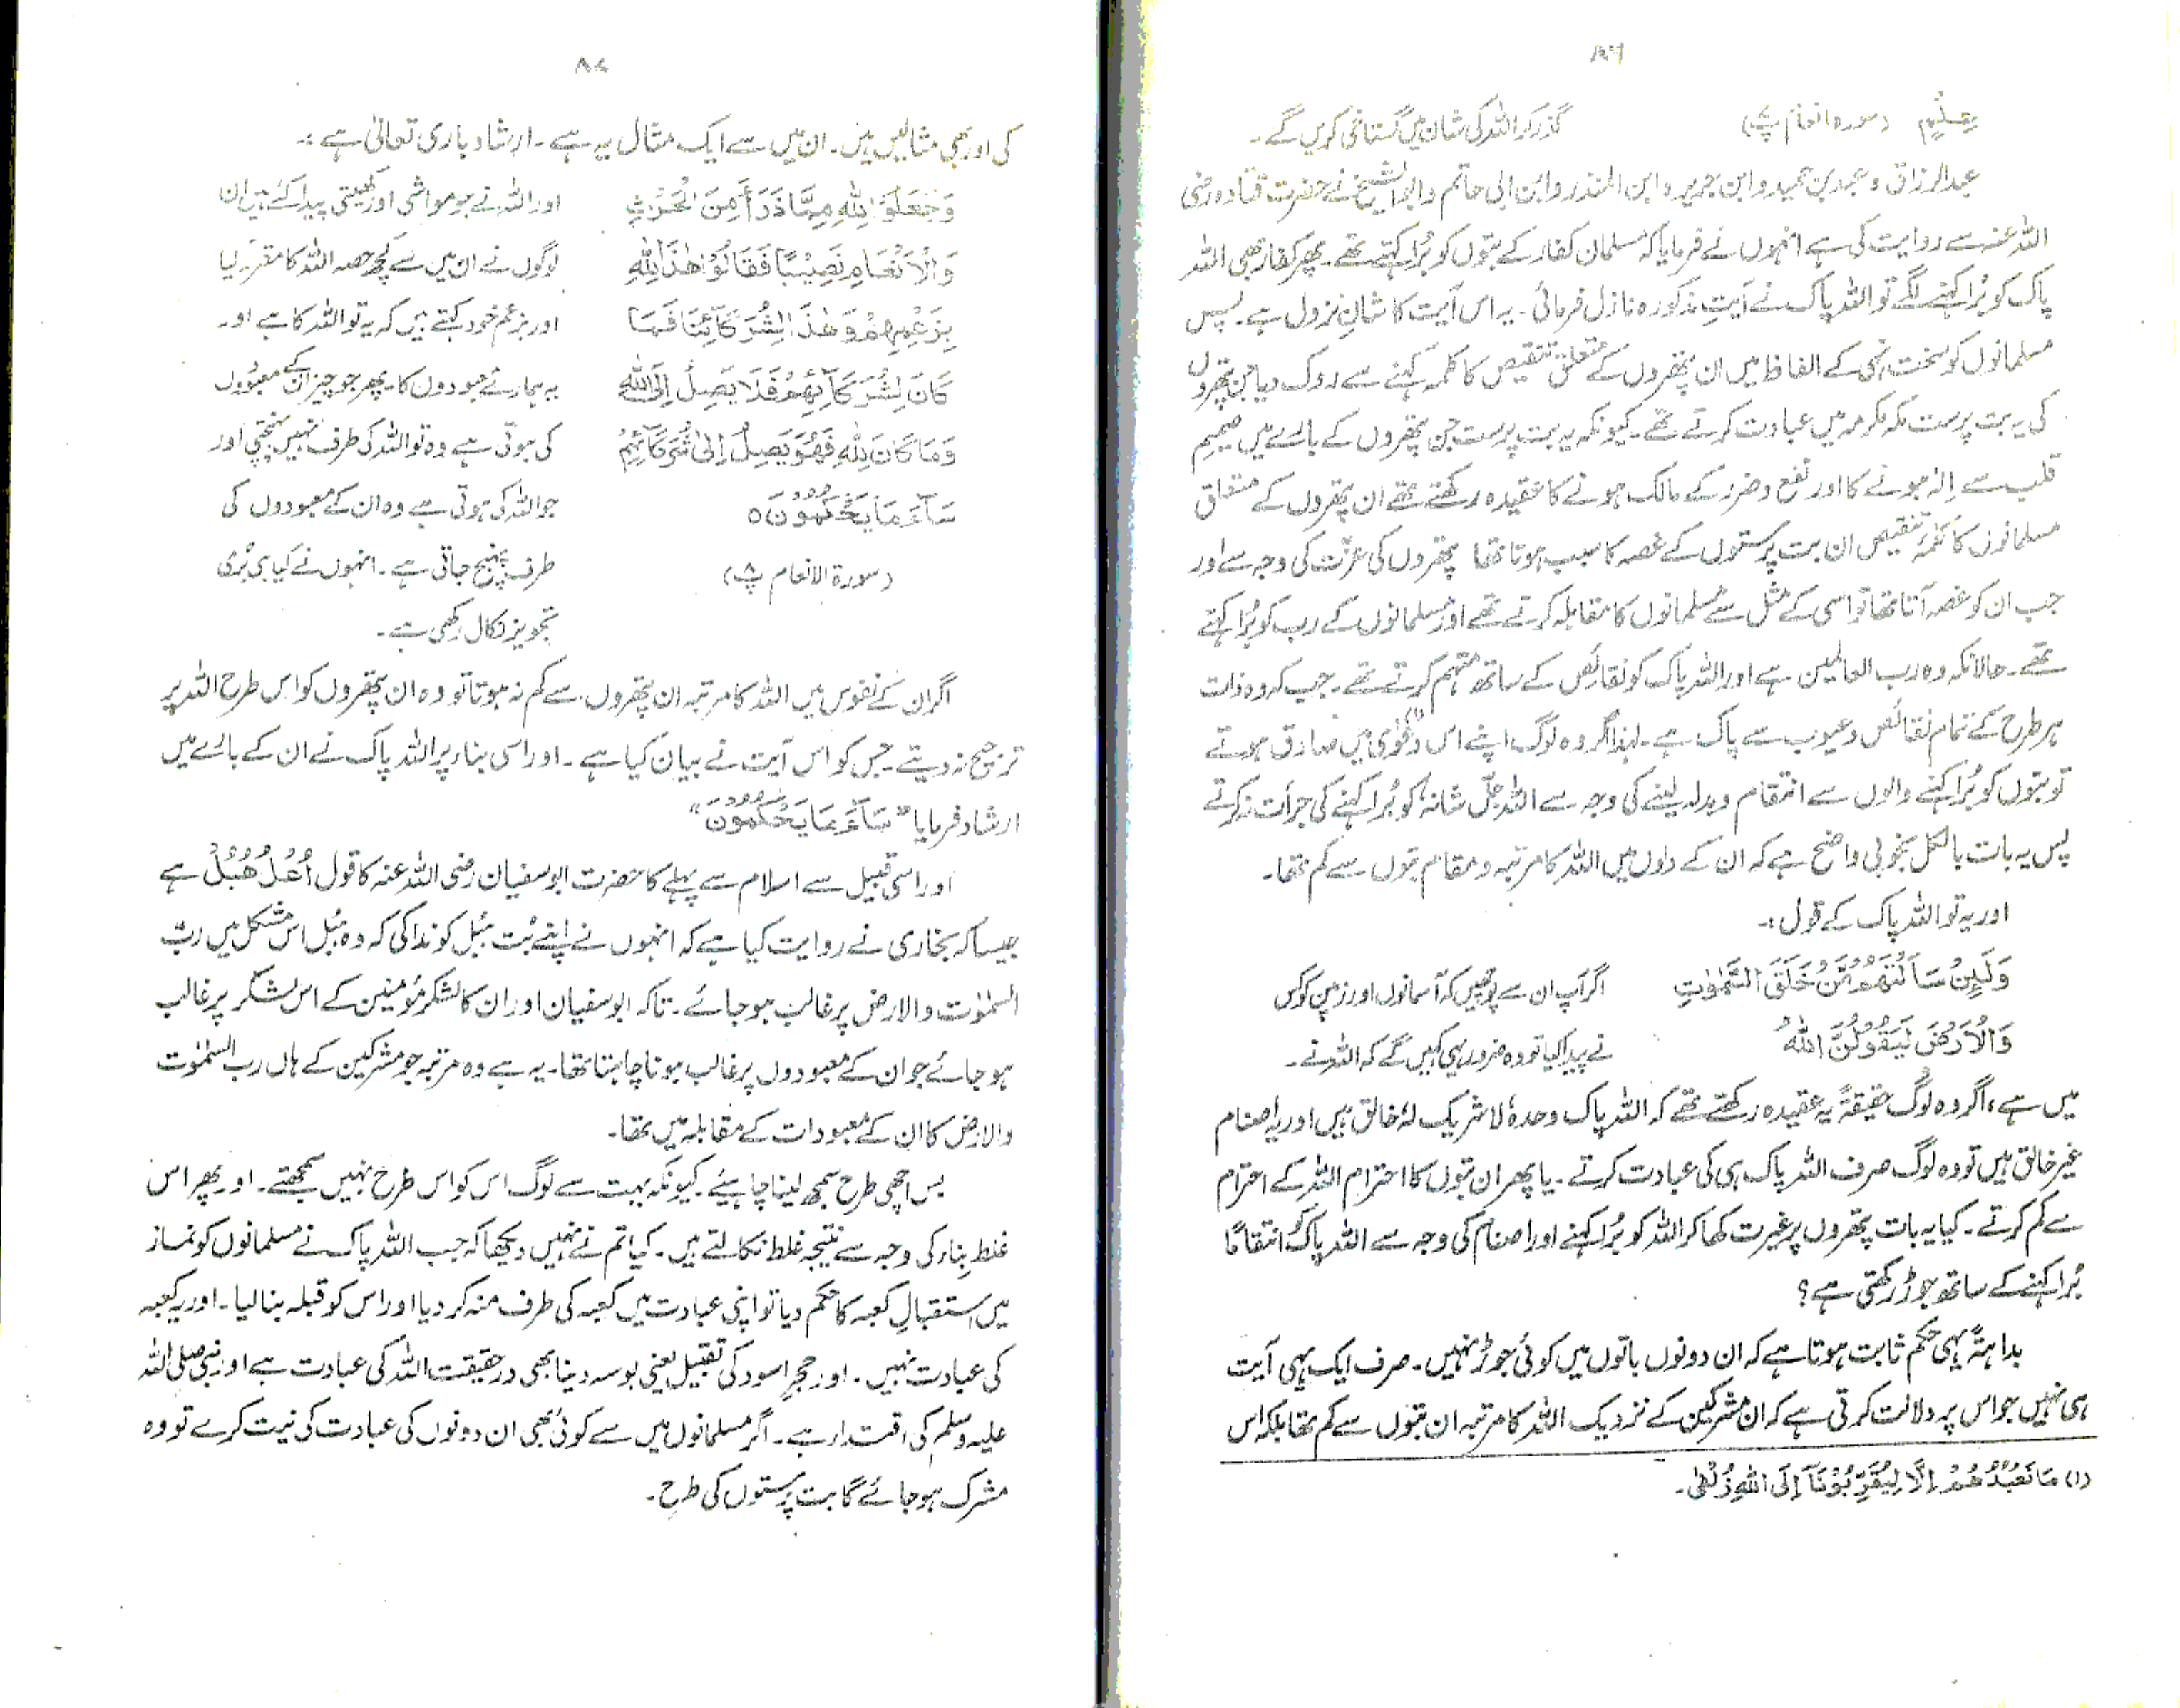 ۸۶
عِلْمٍ (سورہ انعام پ۷) گذر کر اللہ کی شان میں گستاخی کریں گے۔
عبدالرزاق و عبد بن حمید و ابن جریر و ابن المنذر و ابن ابی حاتم و ابو الشیخ نے حضرت قتادہ رضی
اللہ عنہ سے روایت کی ہے انہوں نے فرمایا کہ مسلمان کفار کے بتوں کو بُرا کہتے تھے۔ پھر کفار بھی اللہ
پاک کو بُرا کہنے لگے تو اللہ پاک نے آیتِ مذکورہ نازل فرمائی۔ یہ اس آیت کا شانِ نزول ہے۔ پس
مسلمانوں کو سخت نہی کے الفاظ میں ان پتھروں کے متعلق تنقیص کا کلمہ کہنے سے روک دیا جن پتھروں
کی یہ بت پرست مکہ مکرمہ میں عبادت کرتے تھے۔ کیونکہ یہ بت پرست جن پتھروں کے بارے میں صمیم
قلب سے اِلٰہ ہونے کا اور نفع و ضرر کے مالک ہونے کا عقیدہ رکھتے تھے ان پتھروں کے متعلق
مسلمانوں کا کلمۂ تنقیص ان بت پرستوں کے غصہ کا سبب ہوتا تھا پتھروں کی عزت کی وجہ سے اور
جب ان کو غصہ آتا تھا تو اسی کے مثل سے مسلمانوں کا مقابلہ کرتے تھے اور مسلمانوں کے رب کو بُرا کہتے
تھے۔ حالانکہ وہ رب العالمین ہے اور اللہ پاک کو نقائص کے ساتھ متہم کرتے تھے۔ جب کہ وہ ذات
ہر طرح کے تمام نقائص و عیوب سے پاک ہے۔ لہٰذا اگر وہ لوگ اپنے اس دعوٰی(۱) میں صادق ہوتے
تو بتوں کو بُرا کہنے والوں سے انتقام و بدلہ لینے کی وجہ سے اللہ جلّ شانہٗ کو بُرا کہنے کی جرأت نہ کرتے
پس یہ بات بالکل بخوبی واضح ہے کہ ان کے دلوں میں اللہ کا مرتبہ و مقام بتوں سے کم تھا۔
اور یہ تو اللہ پاک کے قول :۔
وَلَئِنْ سَاَلْتَهُمْ مَّنْ خَلَقَ السَّمٰوٰتِ اگر آپ ان سے پوچھیں کہ آسمانوں اور زمین کو کس
وَالْاَرْضَ لَيَقُوْلُنَّ اللّٰهُ نے پیدا کیا تو وہ ضرور یہی کہیں گے کہ اللہ نے۔
میں ہے، اگر وہ لوگ حقیقۃً یہ عقیدہ رکھتے تھے کہ اللہ پاک وحدہٗ لا شریک لہٗ خالق ہیں اور یہ اصنام
غیر خالق ہیں تو وہ لوگ صرف اللہ پاک ہی کی عبادت کرتے۔ یا پھر ان بتوں کا احترام اللہ کے احترام
سے کم کرتے۔ کیا یہ بات پتھروں پر غیرت کھا کر اللہ کو بُرا کہنے اور اصنام کی وجہ سے اللہ پاک کو انتقامًا
بُرا کہنے کے ساتھ جوڑ رکھتی ہے؟
بداہتًہ یہی حکم ثابت ہوتا ہے کہ ان دونوں باتوں میں کوئی جوڑ نہیں۔ صرف ایک یہی آیت
ہی نہیں جو اس پر دلالت کرتی ہے کہ ان مشرکین کے نزدیک اللہ کا مرتبہ ان بتوں سے کم تھا بلکہ اس
(۱) مَا نَعْبُدُهُمْ اِلَّا لِيُقَرِّبُوْنَآ اِلَى اللّٰهِ زُلْفٰى۔
۸۷
کی اور بھی مثالیں ہیں۔ ان میں سے ایک مثال یہ ہے۔ ارشاد باری تعالیٰ ہے :۔
وَجَعَلُوْا لِلّٰهِ مِمَّا ذَرَاَ مِنَ الْحَرْثِ اور اللہ نے جو مواشی اور کھیتی پیدا کئے ہیں ان
وَالْاَنْعَامِ نَصِيْبًا فَقَالُوْا هٰذَا لِلّٰهِ لوگوں نے ان میں سے کچھ حصہ اللہ کا مقرر کیا
بِزَعْمِهِمْ وَهٰذَا لِشُرَكَآئِنَا فَمَا اور بزعم خود کہتے ہیں کہ یہ تو اللہ کا ہے اور
كَانَ لِشُرَكَآئِهِمْ فَلَا يَصِلُ اِلَى اللّٰهِ یہ ہمارے معبودوں کا۔ پھر جو چیز ان کے معبودوں
وَمَا كَانَ لِلّٰهِ فَهُوَ يَصِلُ اِلٰى شُرَكَآئِهِمْ کی ہوتی ہے وہ تو اللہ کی طرف نہیں پہنچتی اور
سَآءَ مَا يَحْكُمُوْنَ ٥ جو اللہ کی ہوتی ہے وہ ان کے معبودوں کی
(سورۃ الانعام پ۸) طرف پہنچ جاتی ہے۔ انہوں نے کیا ہی بُری
تجویز نکال رکھی ہے۔
اگر ان کے نفوس میں اللہ کا مرتبہ ان پتھروں سے کم نہ ہوتا تو وہ ان پتھروں کو اس طرح اللہ پر
ترجیح نہ دیتے جس کو اس آیت نے بیان کیا ہے۔ اور اسی بناء پر اللہ پاک نے ان کے بارے میں
ارشاد فرمایا ”سَآءَ مَا يَحْكُمُوْنَ“
اور اسی قبیل سے اسلام سے پہلے کا حضرت ابو سفیان رضی اللہ عنہ کا قول اُعْلُ هُبُلْ ہے
جیسا کہ بخاری نے روایت کیا ہے کہ انہوں نے اپنے بُت ہُبُل کو ندا کی کہ وہ ہُبُل اس مشکل میں ربّ
السمٰوٰت والارض پر غالب ہو جائے۔ تاکہ ابو سفیان اور ان کا لشکر مؤمنین کے اس لشکر پر غالب
ہو جائے جو ان کے معبودوں پر غالب ہونا چاہتا تھا۔ یہ ہے وہ مرتبہ جو مشرکین کے ہاں رب السمٰوٰت
والارض کا ان کے معبودات کے مقابلہ میں تھا۔
بس اچھی طرح سمجھ لینا چاہیئے کیونکہ بہت سے لوگ اس کو اس طرح نہیں سمجھتے۔ اور پھر اس
غلط بِناء کی وجہ سے نتیجہ غلط نکالتے ہیں۔ کیا تم نے نہیں دیکھا کہ جب اللہ پاک نے مسلمانوں کو نماز
میں استقبالِ کعبہ کا حکم دیا تو اپنی عبادت میں کعبہ کی طرف منہ کر دیا اور اس کو قبلہ بنا لیا۔ اور یہ کعبہ
کی عبادت نہیں۔ اور حجرِ اسود کی تقبیل یعنی بوسہ دینا بھی درحقیقت اللہ کی عبادت ہے اور نبی صلی اللہ
علیہ وسلم کی اقتداء ہے۔ اگر مسلمانوں میں سے کوئی بھی ان دونوں کی عبادت کی نیت کرے تو وہ
مشرک ہو جائے گا بت پرستوں کی طرح۔